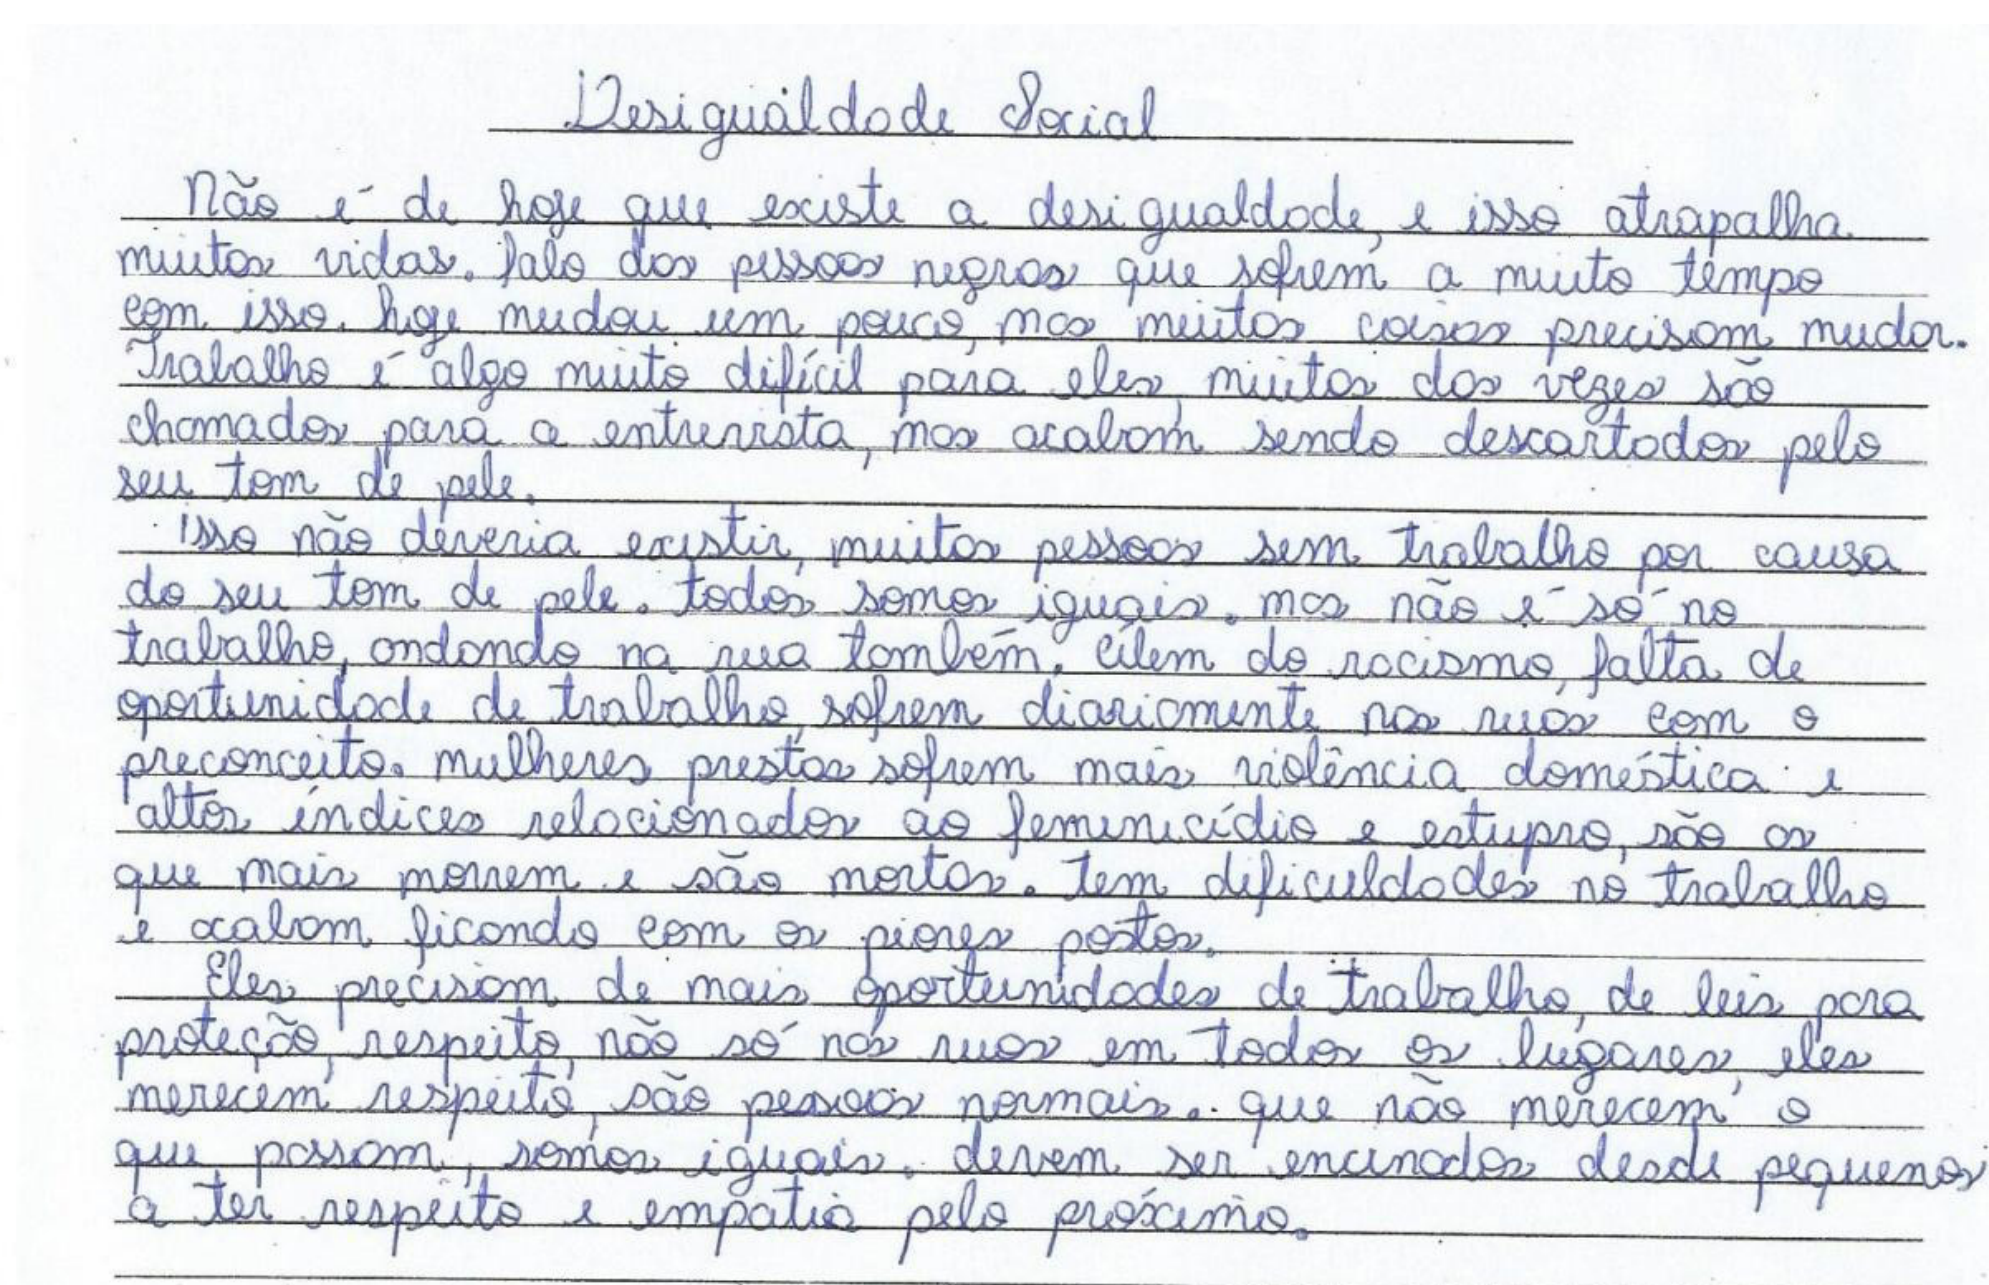 Desigualdade Social
Não é de hoje que existe a desigualdade, e isso atrapalha
muitas vidas. falo das pessoas negras que sofrem a muito tempo
com isso. hoje mudou um pouco, mas muitas coisas precisam mudar.
Trabalho é algo muito difícil para eles, muitas das vezes são
chamados para a entrevista, mas acabam sendo descartados pelo
seu tom de pele.
isso não deveria existir, muitas pessoas sem trabalho por causa
do seu tom de pele. todos somos iguais. mas não é só no
trabalho, andando na rua também. Além do racismo, falta de
oportunidade de trabalho, sofrem diariamente nas ruas com o
preconceito. mulheres prestas sofrem mais violência doméstica e
altos índices relacionados ao feminicídio e estupro, são as
que mais morrem e são mortas. tem dificuldades no trabalho
e acabam ficando com os piores postos.
Eles precisam de mais oportunidades de trabalho, de leis para
proteção, respeito, não só nas ruas em todos os lugares, eles
merecem respeito, são pessoas normais. que não merecem o
que passam, somos iguais. devem ser encinados desde pequenos
a ter respeito e empatia pelo próximo.